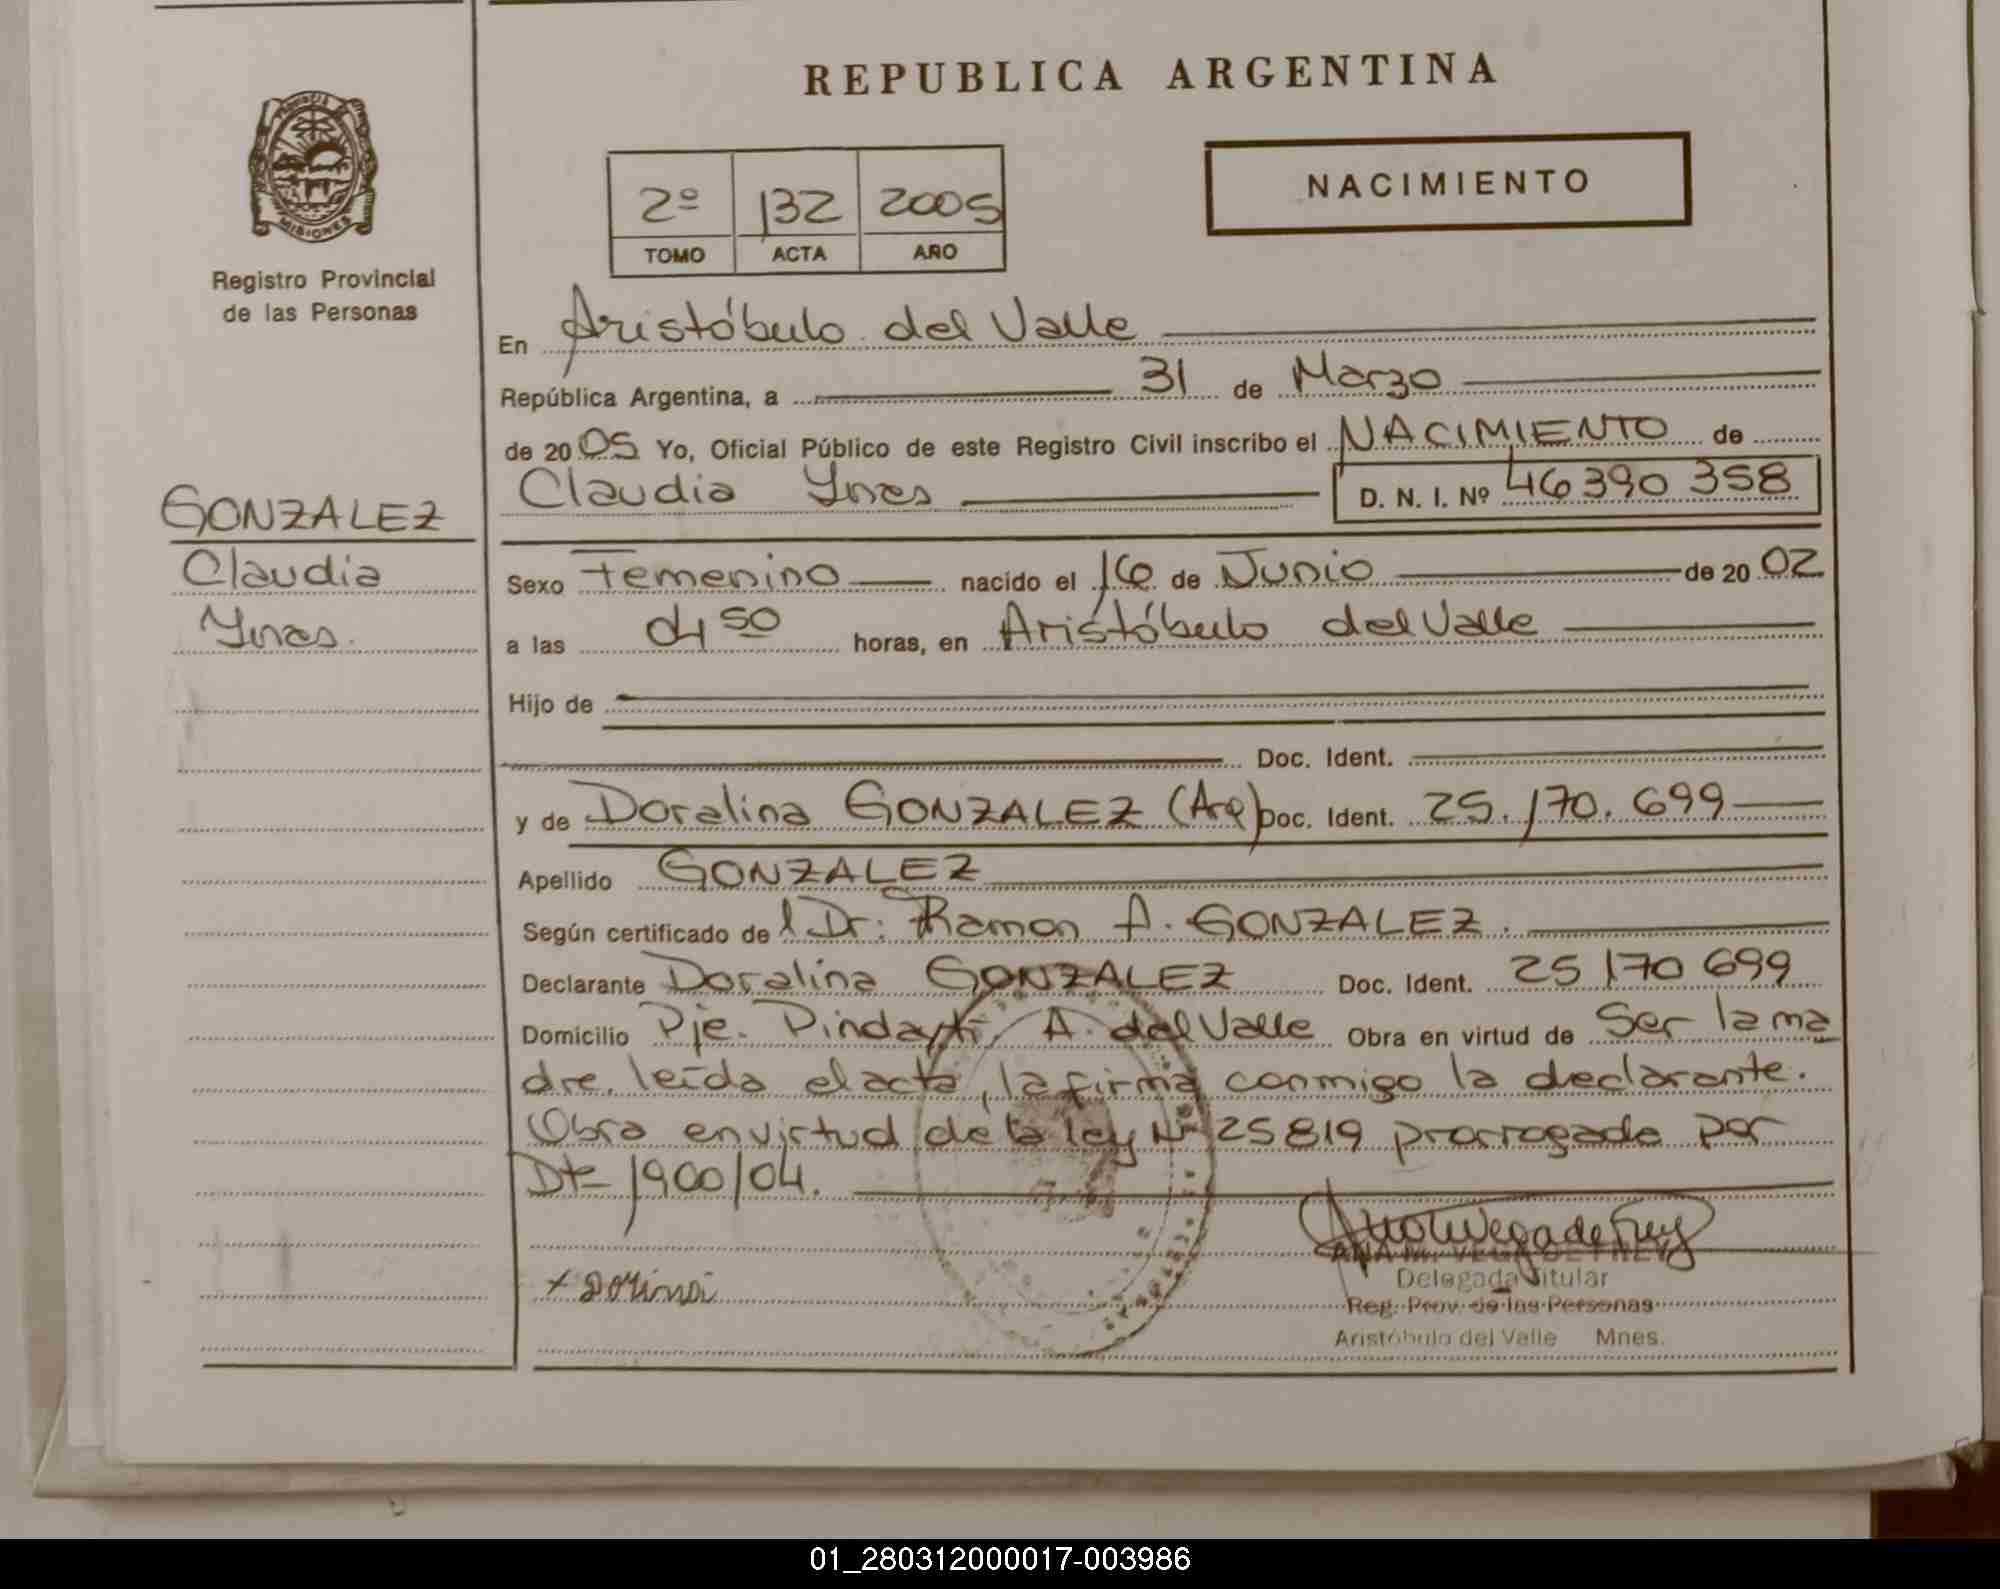 REPUBLICA ARGENTINA
PROVINCIA DE MISIONES
Registro Provincial
de las Personas
2º 132 2005
TOMO ACTA AÑO
NACIMIENTO
En Aristóbulo del Valle
República Argentina, a 31 de Marzo
de 2005 Yo, Oficial Público de este Registro Civil inscribo el NACIMIENTO de
Claudia Ynes D. N. I. Nº 46390358
GONZALEZ
Claudia
Ynes.
Sexo Femenino nacido el 16 de Junio de 2002
a las 04 50 horas, en Aristóbulo del Valle
Hijo de
Doc. Ident.
y de Doralina GONZALEZ (Arg) Doc. Ident. 25.170.699
Apellido GONZALEZ
Según certificado del Dr: Ramon A. GONZALEZ.
Declarante Doralina GONZALEZ Doc. Ident. 25170699
Domicilio Pje. Pindayti A. del Valle Obra en virtud de Ser la ma
dre. leída el acta, la firma conmigo la declarante.
Obra en virtud de la ley Nº 25819 prorrogada por
Dto 1900/04.
x Dorina
ANA M. VEGA DE FREY
Delegada Titular
Reg. Prov. de las Personas
Aristóbulo del Valle Mnes.
01_280312000017-003986